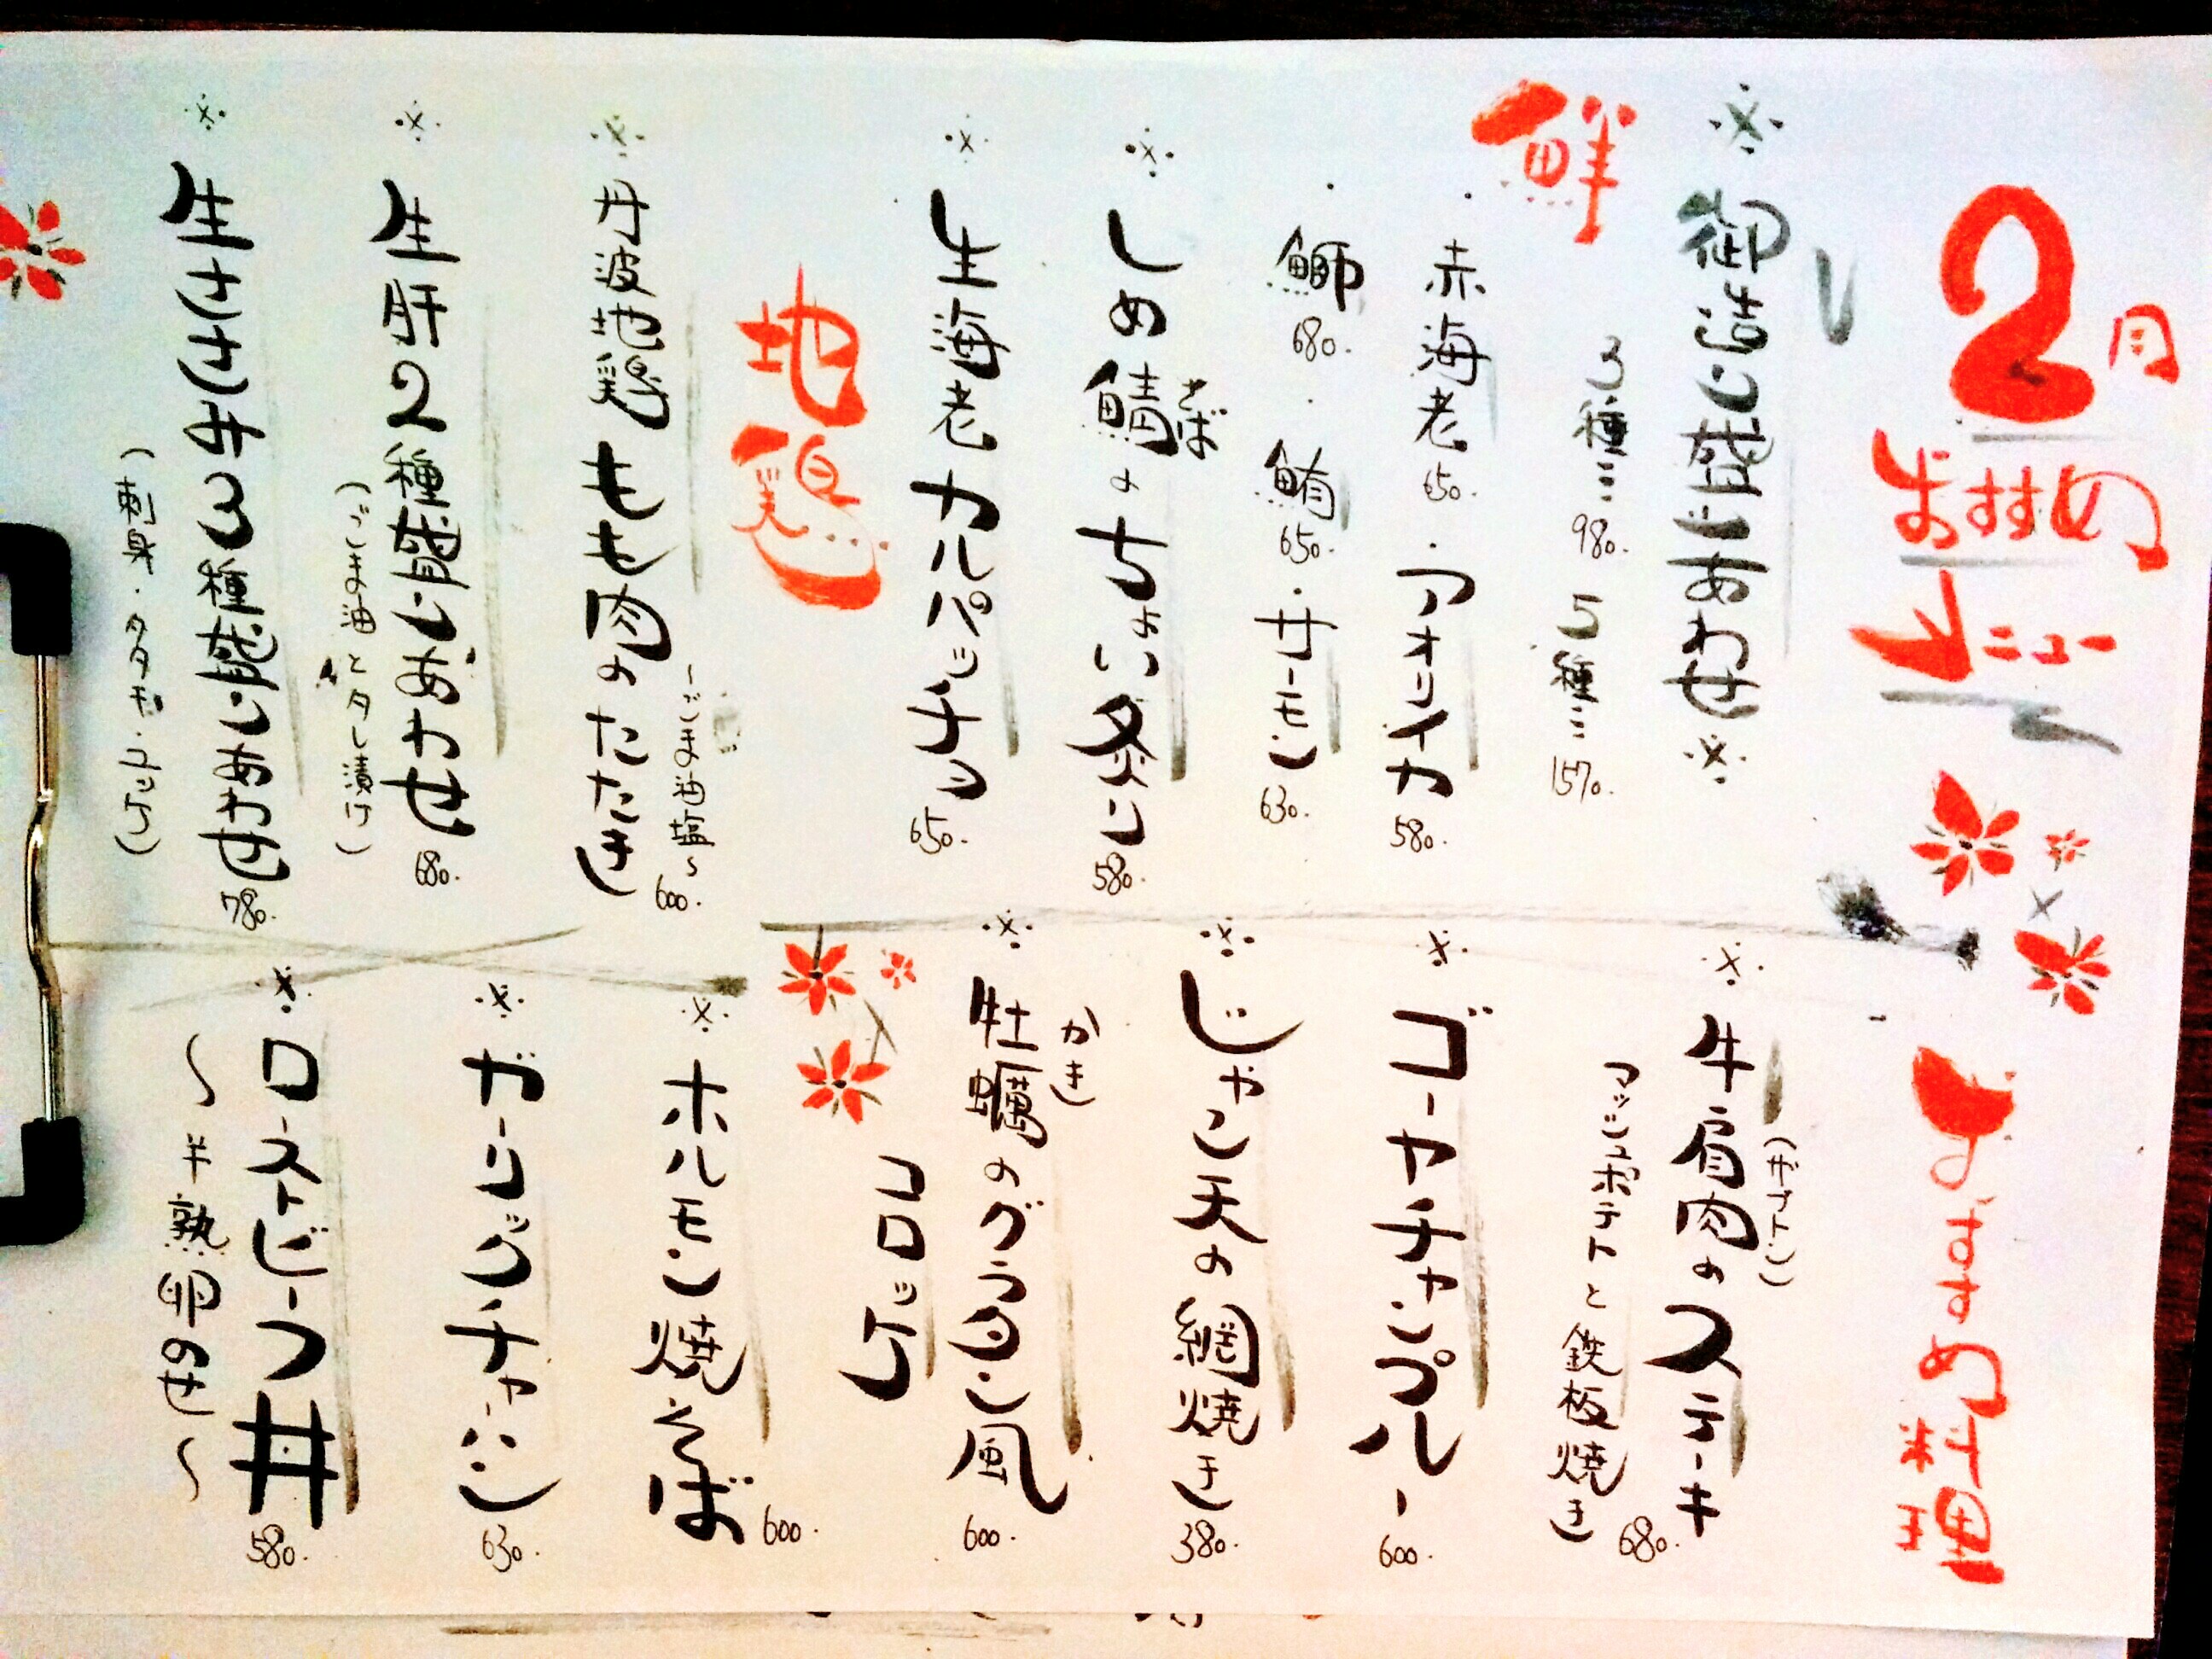 2月
おすすめ
メニュー
※御造り盛りあわせ※
3種… 980. 5種… 1570.
鮮
・赤海老 650. ・アオリイカ 580.
・鰤 680. ・鮪 650. ・サーモン 630.
※しめ鯖のちょい炙り 580.
さば
※生海老カルパッチョ 650.
地鶏
〜ごま油塩〜
※丹波地鶏もも肉のたたき 600.
※生肝2種盛りあわせ 680.
(ごま油とタレ漬け)
※生ささみ3種盛りあわせ 780.
(刺身・タタキ・ユッケ)
おすすめ料理
(ザブトン)
※牛肩肉のステーキ
マッシュポテトと鉄板焼き 680.
※ゴーヤチャンプルー 600.
※じゃこ天の網焼き 380.
かき
※牡蠣のグラタン風 600.
コロッケ
※ホルモン焼そば 600.
※ガーリックチャーハン 630.
※ローストビーフ丼 580.
〜半熟卵のせ〜